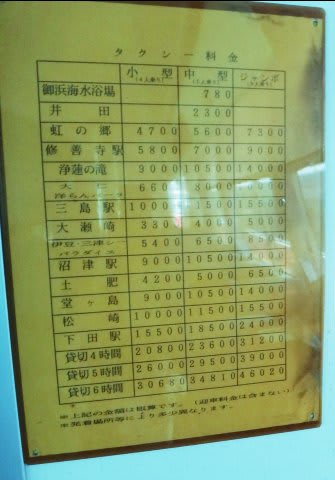 タクシー料金
小型 中型 ジャンボ
(4人乗り) (5人乗り)
御浜海水浴場 780
井田 2300
虹の郷 4700 5600 7300
修善寺駅 5800 7000 9000
浄蓮の滝 9000 10500 14000
大仁
洋らんパーク
三島駅 10000 11500 15500
大瀬崎 3300
伊豆・三津シー
パラダイス 5400 6500 8500
沼津駅 9000 10500 14000
土肥 4200 5000 6500
堂ヶ島 9000 10500 14000
松崎 10000 11500 15500
下田駅 15500 18500 24000
貸切4時間 20800 23600 31200
貸切5時間 26000 29500 39000
貸切6時間 30680 34810 46020
※上記の金額は概算です。(迎車料金は含まない)
※発着場所等により多少異なります。